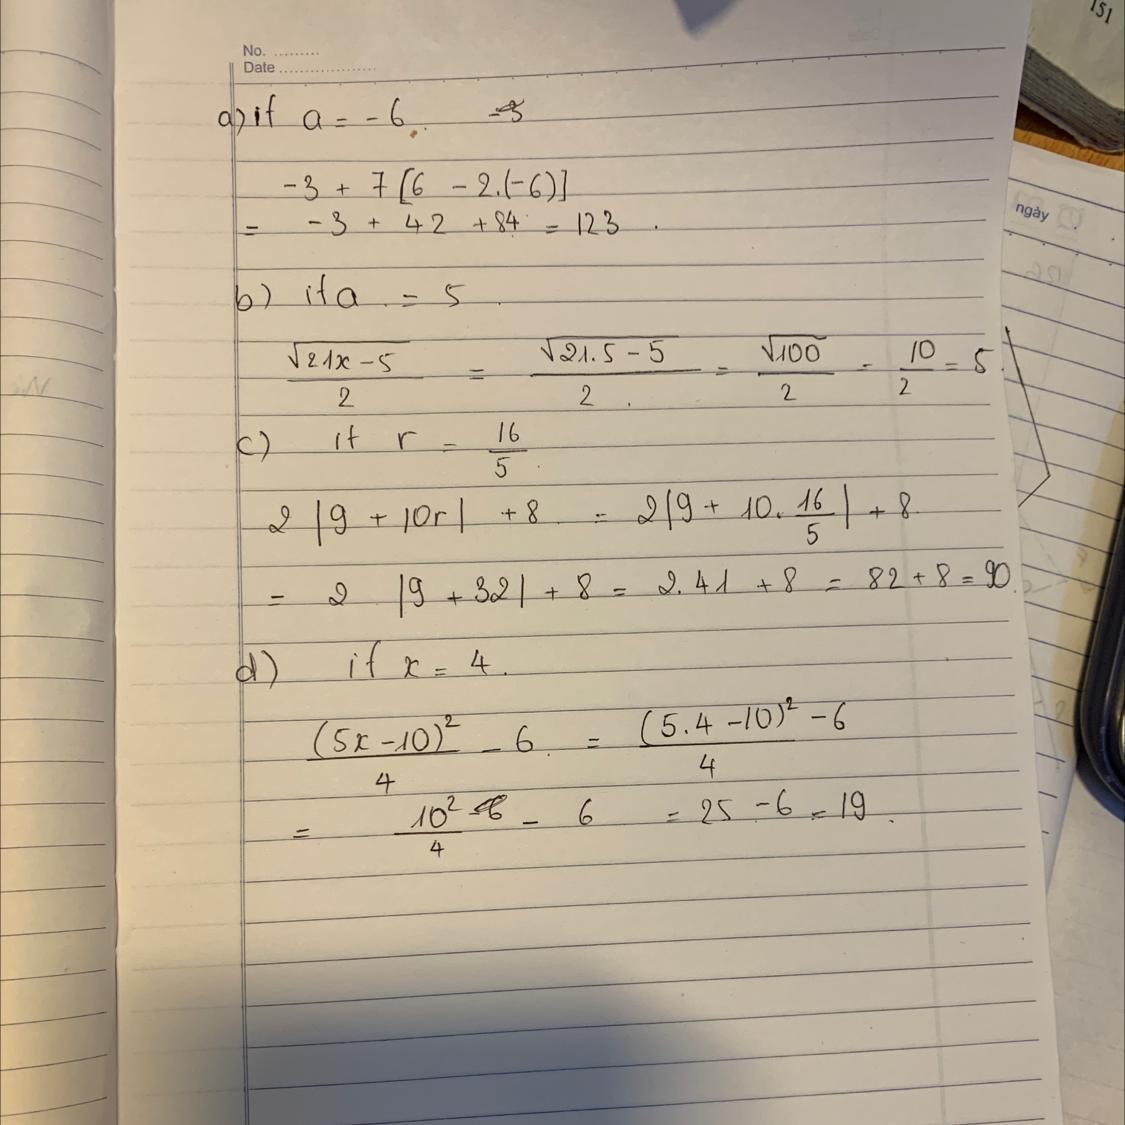 No. ..........
Date ....................
a) if a = -6.
-3 + 7 [6 - 2.(-6)]
= -3 + 42 + 84 = 123.
b) if a = 5.
√21x - 5 / 2 = √21.5 - 5 / 2 = √100 / 2 = 10 / 2 = 5.
c) if r = 16/5.
2 |9 + 10r| + 8 = 2|9 + 10. 16/5| + 8.
= 2 |9 + 32| + 8 = 2.41 + 8 = 82 + 8 = 90.
d) if x = 4.
(5x - 10)² / 4 - 6 = (5.4 - 10)² / 4 - 6
= 10² / 4 - 6 = 25 - 6 = 19.
151
ngày